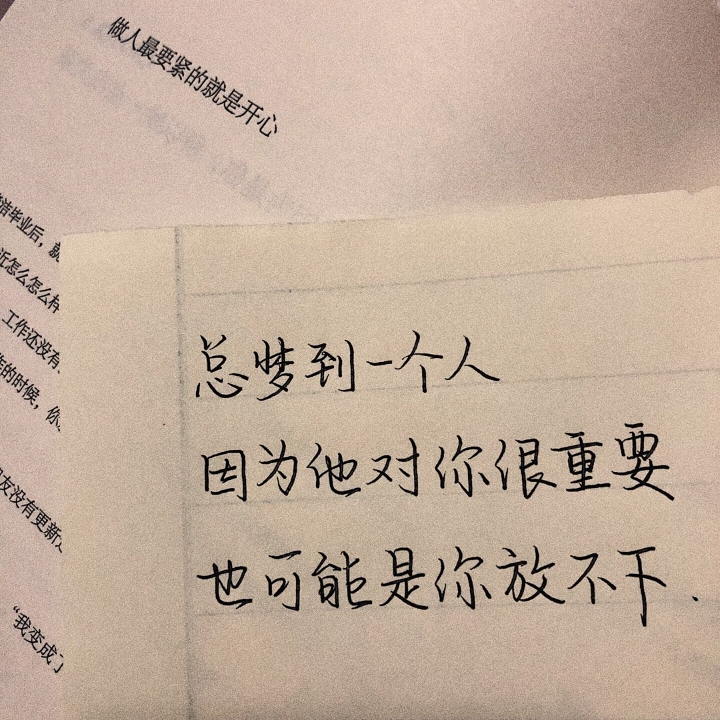 做人最要紧的就是开心
毕业后，就
近怎么怎么样
工作还没有
的时候，你
友没有更新
“我变成了
总梦到一个人
因为他对你很重要
也可能是你放不下.